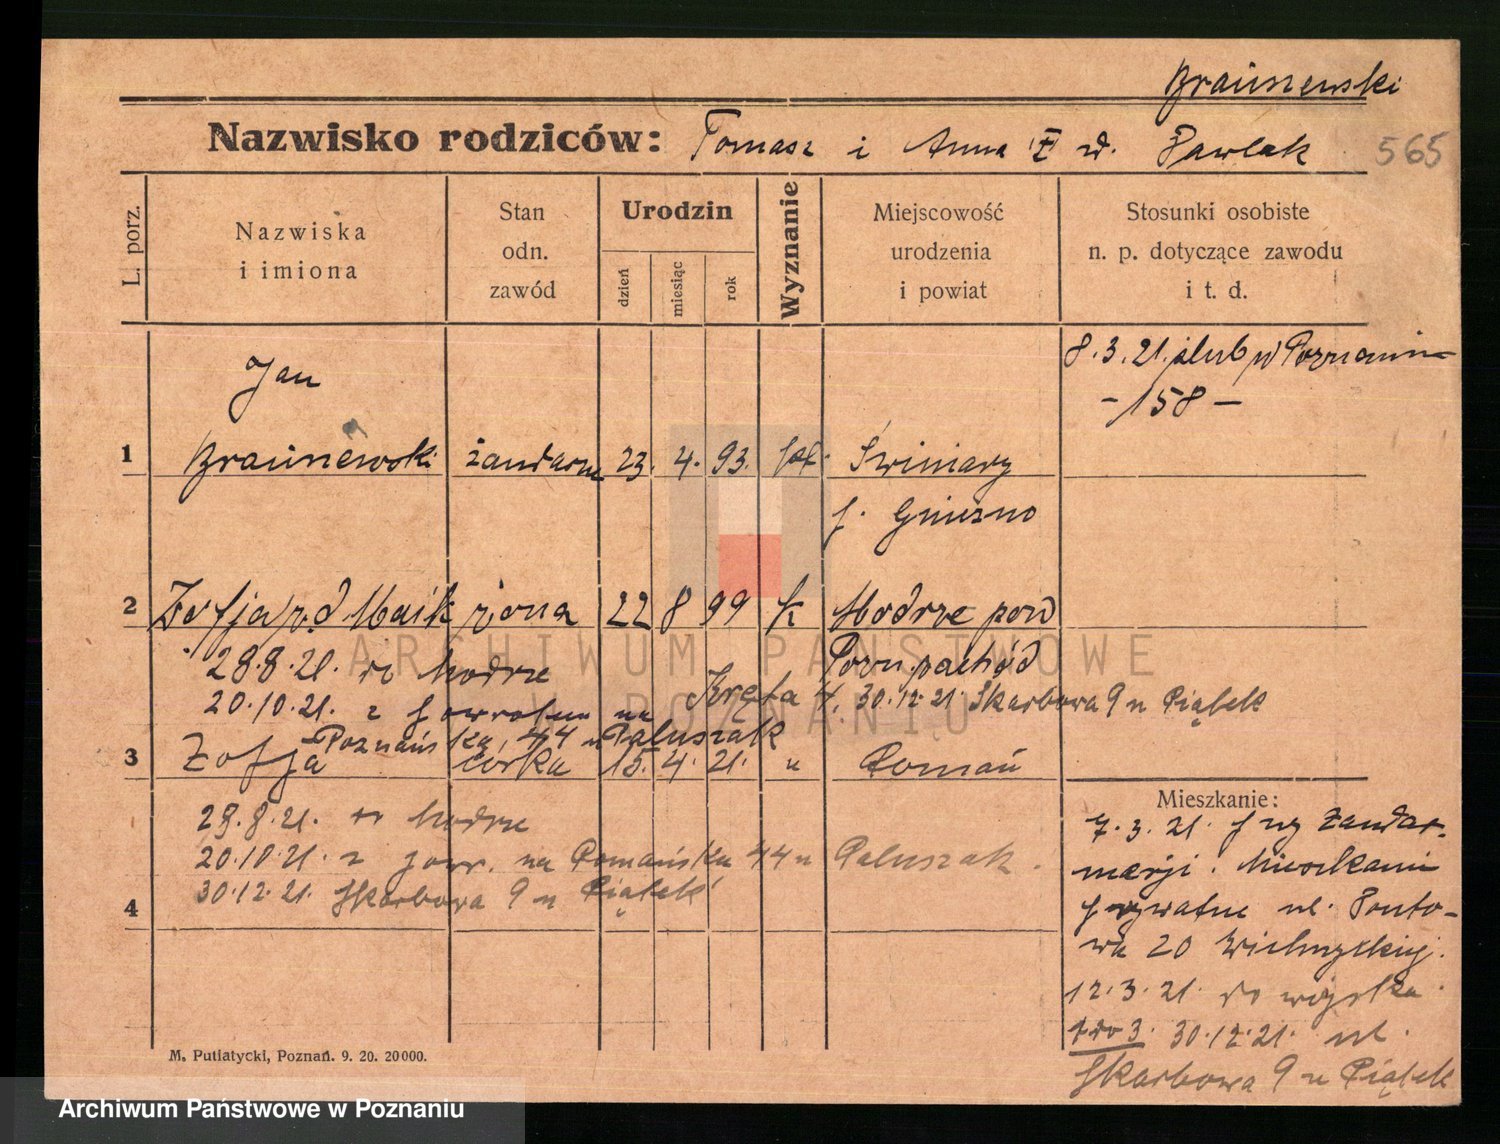 Braunewski
Nazwisko rodziców: Tomasz i Anna z d. Pawlak 565
L. porz.
Nazwiska
i imiona
Stan
odn.
zawód
Urodzin
dzień
miesiąc
rok
Wyznanie
Miejscowość
urodzenia
i powiat
Stosunki osobiste
n. p. dotyczące zawodu
i t. d.
8.3.21. ślub w Poznaniu
- 158 -
Jan
1 Braunewski żandarm 23. 4. 93. kat. Swiniary
p. Gniezno
2 Zofja z d Maik żona 22 8 99 k Modrze pow
Pozn. zachód
28.8.21. do Modrze
20.10.21. z powrotem na Kręta 4, 30.12.21. Skarbowa 9 u Piątek
Poznańska 44 u Paluszak
3 Zofja córka 15. 4. 21. " Poznań
29.8.21. do Modrze
20.10.21. z powr. na Poznańska 44 u Paluszak.
30.12.21. Skarbowa 9 u Piątek
4
Mieszkanie:
7.3.21. przy Żandar-
merji. Mieszkanie
prywatne ul. Ponto-
wa 20
12.3.21. do wojska.
1 do 3. 30.12.21. ul.
Skarbowa 9 u Piątek
M. Putiatycki, Poznań. 9. 20. 20000.
ARCHIWUM PAŃSTWOWE
W POZNANIU
Archiwum Państwowe w Poznaniu